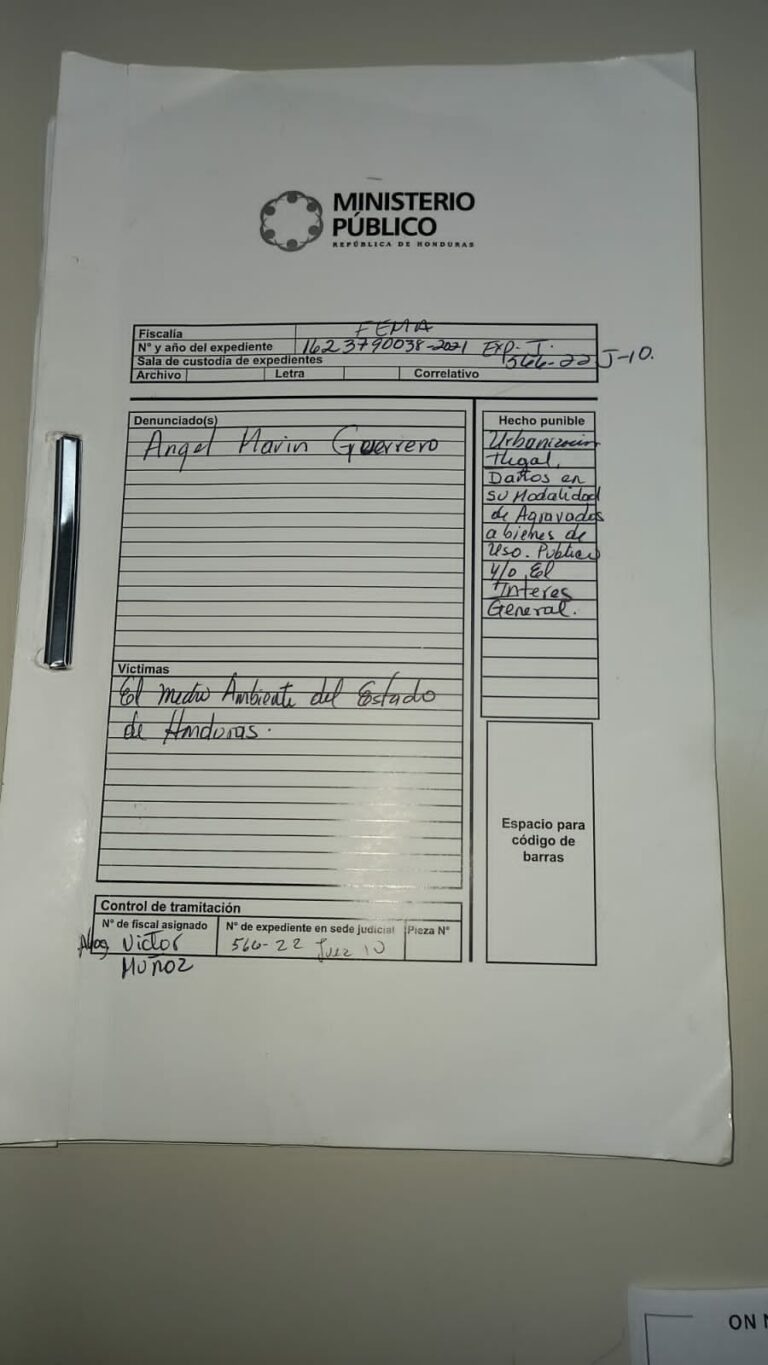 MINISTERIO
PÚBLICO
REPÚBLICA DE HONDURAS
Fiscalía FEMA
N° y año del expediente 1623790038-2021 EXP. T.
Sala de custodia de expedientes 566-22 J-10.
Archivo Letra Correlativo
Denunciado(s)
Angel Marin Guerrero
Víctimas
El Medio Ambiente del Estado
de Honduras.
Hecho punible
Urbanizacion
Ilegal,
Daños en
su Modalidad
de Agravados
a bienes de
Uso. Publico
y/o El
Interes
General.
Espacio para
código de
barras
Control de tramitación
N° de fiscal asignado N° de expediente en sede judicial Pieza N°
Abog Victor 566-22 Juez 10
MUÑOZ
ON